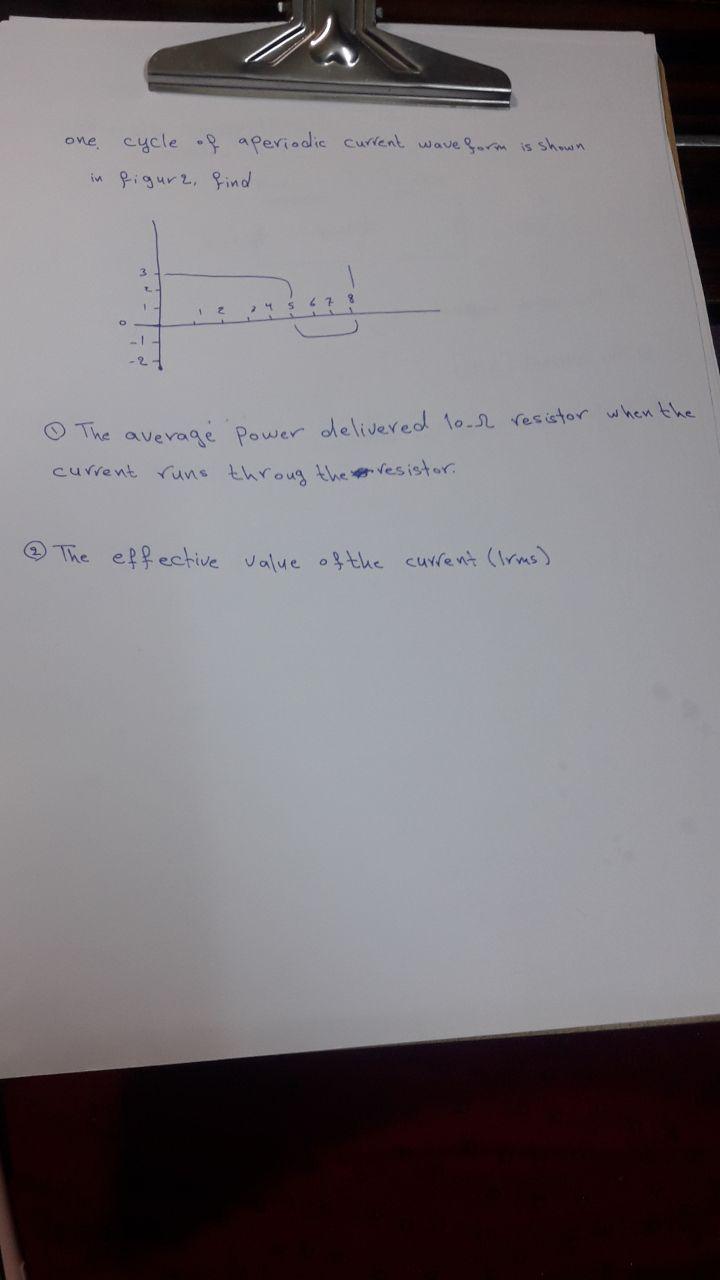 one cycle of aperiodic current wave form is shown
in figur 2, find
3
2
1
0
-1
-2
1 2 3 4 5 6 7 8
① The average power delivered 10-Ω resistor when the
current runs throug the resistor.
② The effective value of the current (Irms)